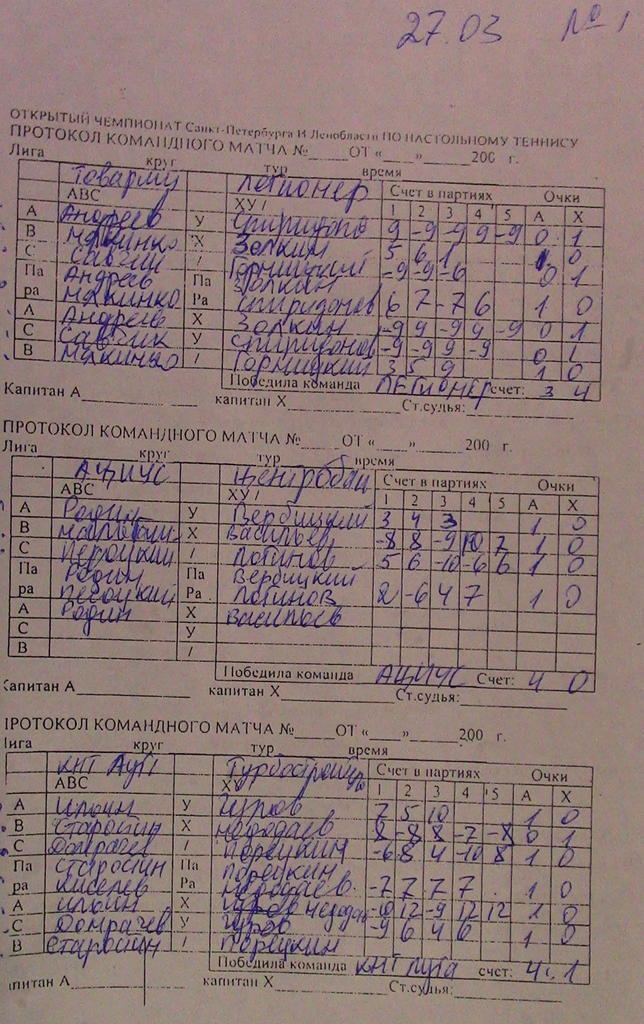 27.03 № 1
ОТКРЫТЫЙ ЧЕМПИОНАТ Санкт-Петербурга И Ленобласти ПО НАСТОЛЬНОМУ ТЕННИСУ
ПРОТОКОЛ КОМАНДНОГО МАТЧА №_____ОТ «____»_______200 г.
Лига круг тур время
Легионер Счет в партиях Очки
АВС ХУ/ 1 2 3 4 5 А Х
А Андреев У 9 -9 -9 9 -9 0 1
В Макинко Х Золкин 5 6 1 1 0
С Савчик / Горницкий -9 -9 -6 0 1
Па Андреев Па Золкин
ра Макинко Ра Спиридонов 6 7 -7 6 1 0
А Андреев Х Золкин -9 9 -9 9 -9 0 1
С Савчик У Спиридонов -9 -9 9 -9 0 1
В Макинко / Горницкий 3 5 9 1 0
Победила команда Легионер счет: 3 4
Капитан А______________ капитан Х______________ Ст.судья:______________
ПРОТОКОЛ КОМАНДНОГО МАТЧА №_____ОТ «____»_______200 г.
Лига круг тур время
АЦИУС Счет в партиях Очки
АВС ХУ/ 1 2 3 4 5 А Х
А Родин У Вербицкий 3 4 3 1 0
В Х Васильев -8 8 -9 10 7 1 0
С / Логинов 5 6 -10 -6 6 1 0
Па Родин Па Вербицкий
ра Ра Логинов 2 -6 4 7 1 0
А Родин Х Васильев
С У
В /
Победила команда АЦИУС Счет: 4 0
Капитан А______________ капитан Х______________ Ст.судья:______________
ПРОТОКОЛ КОМАНДНОГО МАТЧА №_____ОТ «____»_______200 г.
Лига круг тур время
КНТ Луга Турбостроитель Счет в партиях Очки
АВС ХУ 1 2 3 4 5 А Х
А Ильин У Гуров 7 5 10 1 0
В Старостин Х 8 -8 8 -7 -8 0 1
С Домрачев / Порецкин -6 8 4 -10 8 1 0
Па Старостин Па Порецкин
ра Киселев Ра -7 7 7 7 1 0
А Ильин Х -10 12 -9 12 12 1 0
С Домрачев У Гуров -9 6 4 6 1 0
В Старостин / Порецкин
Победила команда КНТ Луга счет: 4 1
Капитан А______________ капитан Х______________ Ст.судья:______________